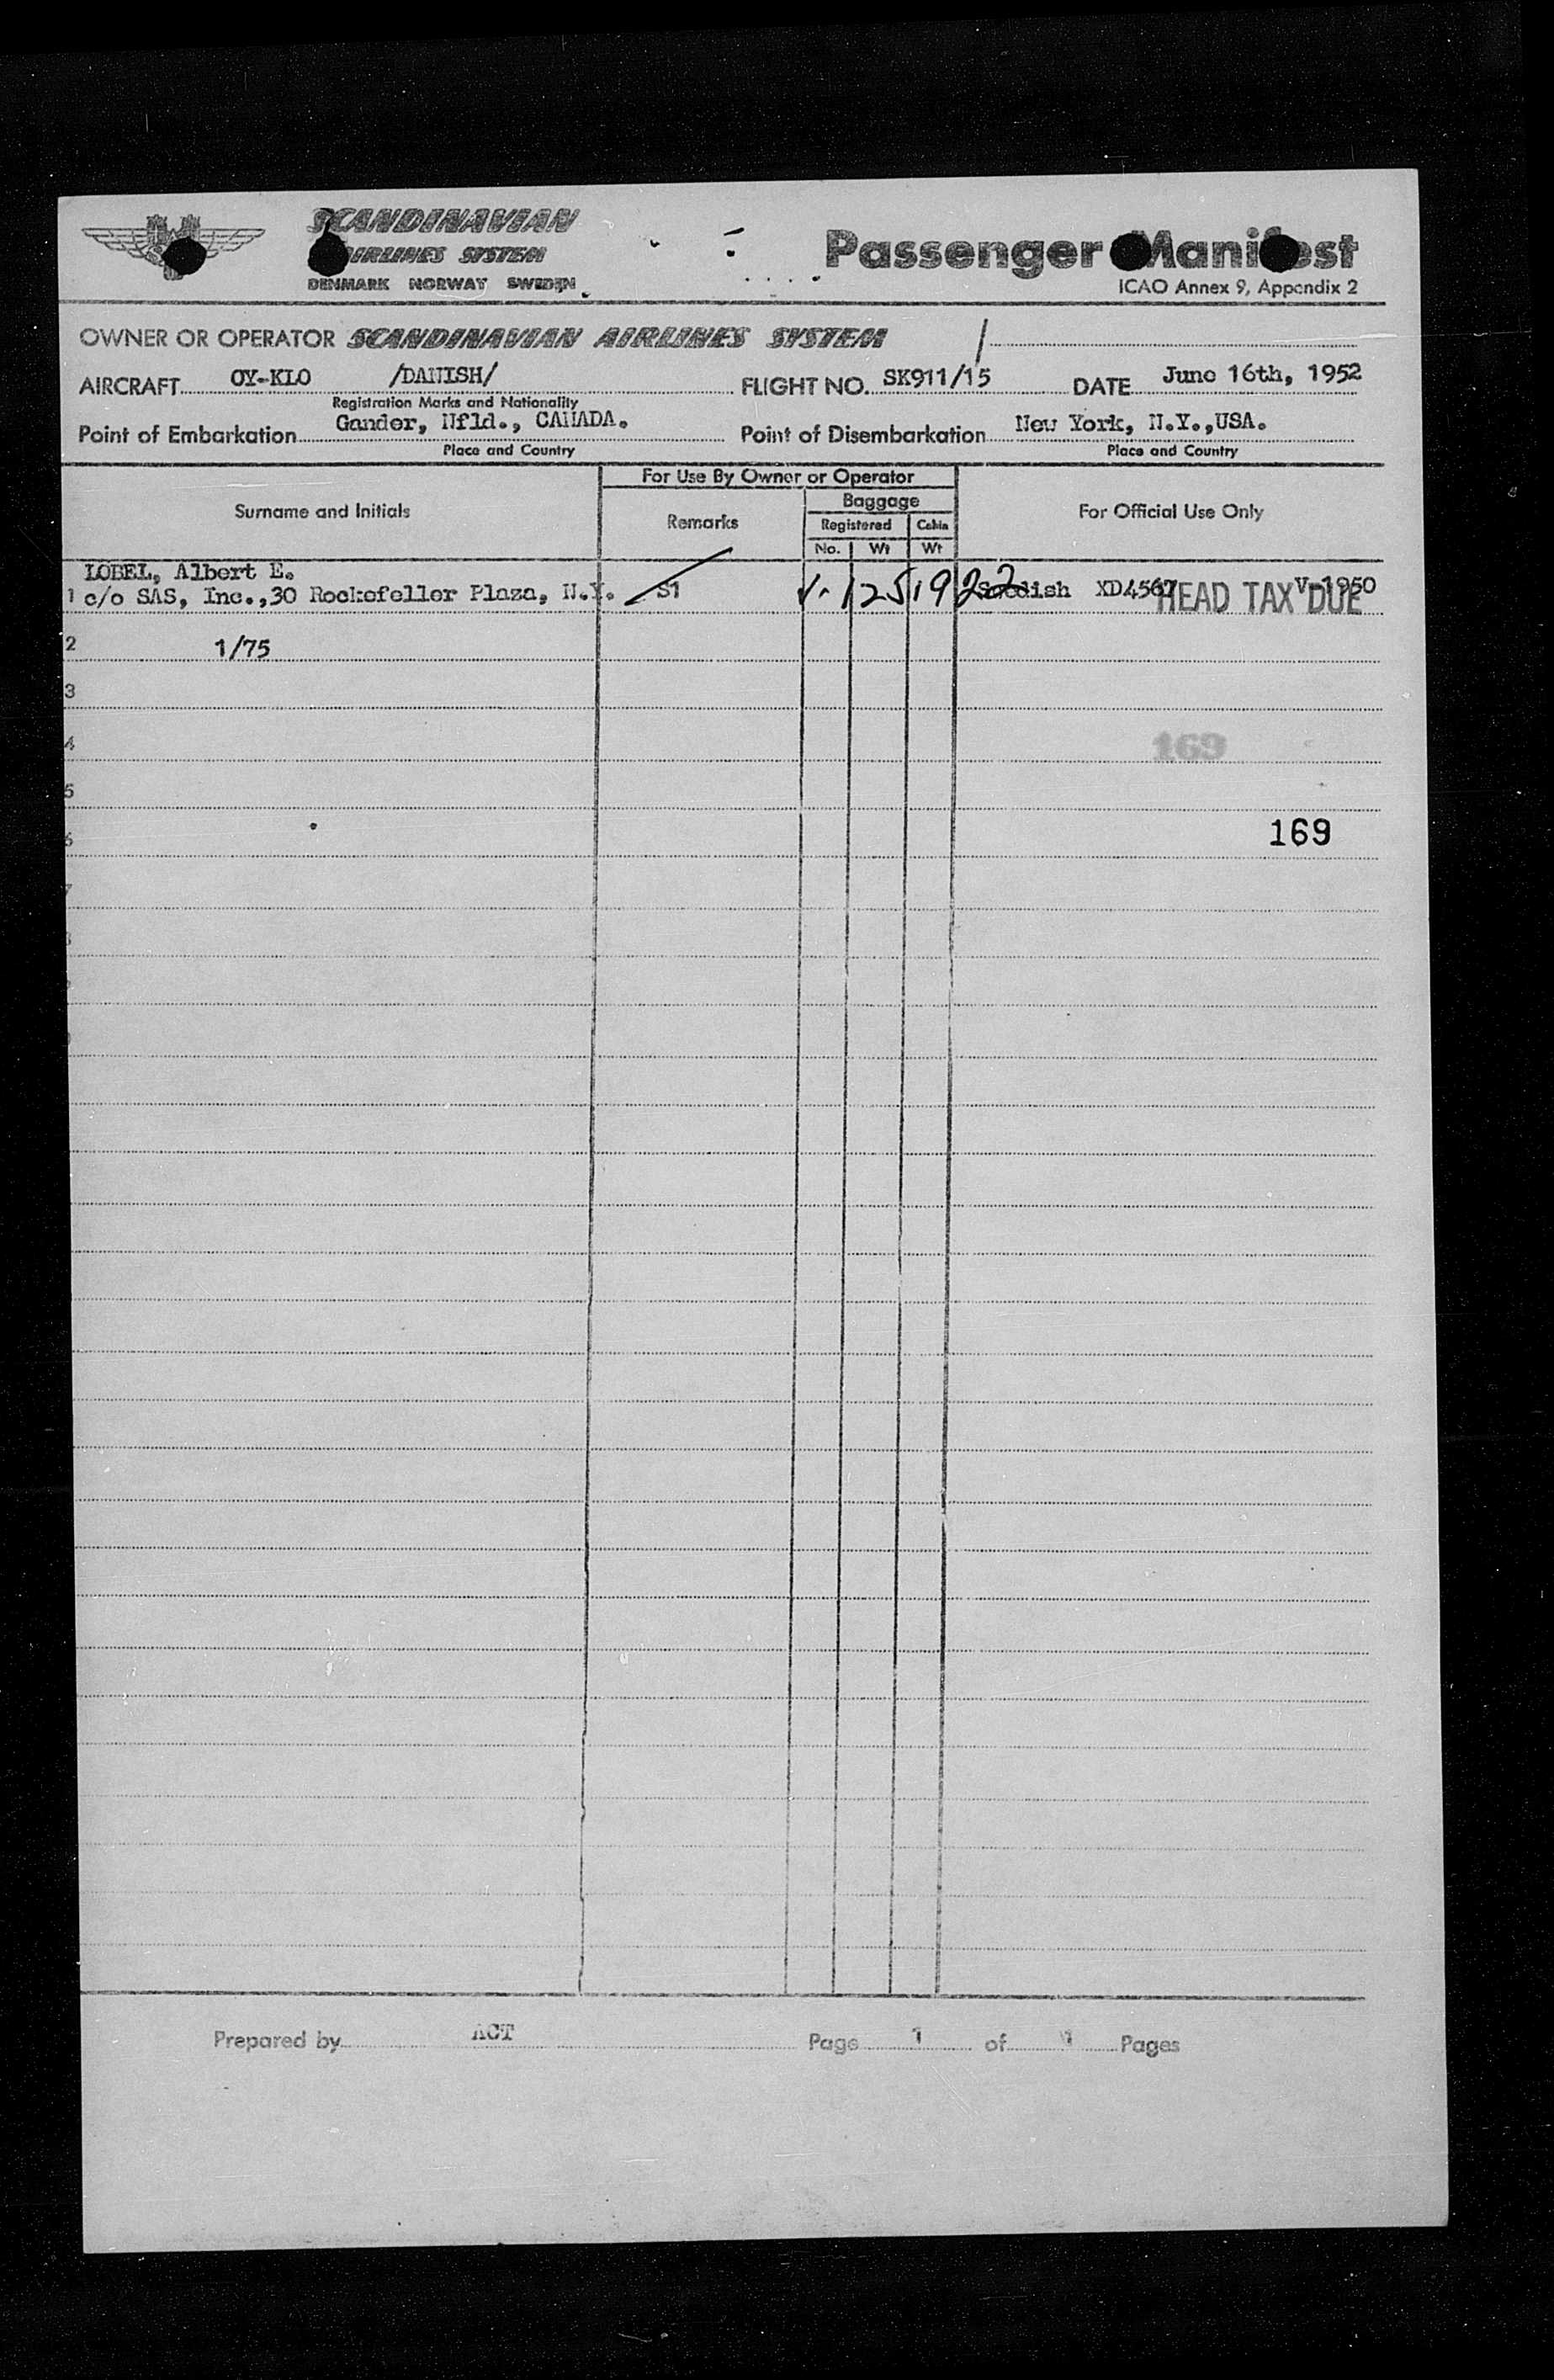 SCANDINAVIAN
AIRLINES SYSTEM
DENMARK NORWAY SWEDEN
Passenger Manifest
ICAO Annex 9, Appendix 2
OWNER OR OPERATOR SCANDINAVIAN AIRLINES SYSTEM
AIRCRAFT OY-KLO /DANISH/ FLIGHT NO. SK911/15 DATE June 16th, 1952
Registration Marks and Nationality
Point of Embarkation Gander, Nfld., CANADA. Point of Disembarkation New York, N.Y.,USA.
Place and Country Place and Country
For Use By Owner or Operator
Surname and Initials Remarks Baggage For Official Use Only
Registered Cabin
No. Wt Wt
LOBEL, Albert E.
1 c/o SAS, Inc.,30 Rockefeller Plaza, N.Y. S1 1 25 19 22 Swedish XD4567 V-1950
HEAD TAX DUE
2 1/75
3
4 169
5
6 169
7
Prepared by ACT Page 1 of 1 Pages